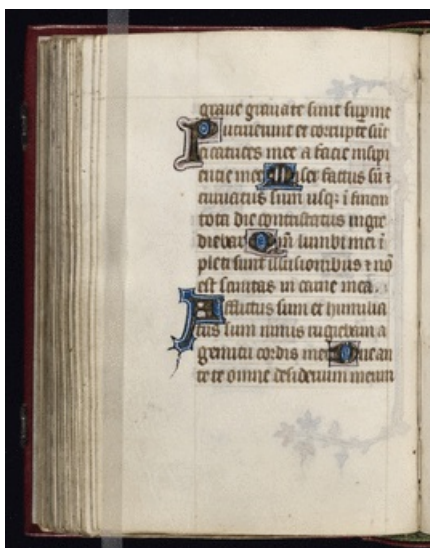 graue grauate sunt sup me
Putruerunt et corrupte sūt
cicatrices mee a facie insipi
encie mee Miser factus sū ⁊
curuatus sum usq; ī finem
tota die contristatus ingre
diebar Qm̄ lumbi mei ī
pleti sunt illusionibus ⁊ nō
est sanitas in carne mea.
Afflictus sum et humilia
tus sum nimis rugiebam a
gemitu cordis mei Dne an
te te omne desiderium meum